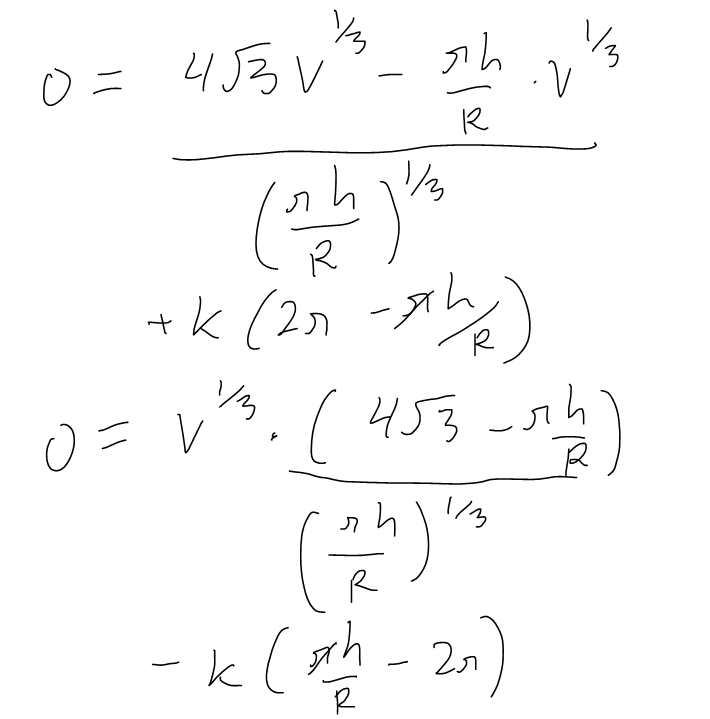 0 = (4√3 V^{1/3} − πh/R · V^{1/3}) / (πh/R)^{1/3}
+ k (2π − h/R)
0 = V^{1/3} · (4√3 − πh/R) / (πh/R)^{1/3}
− k (h/R − 2π)